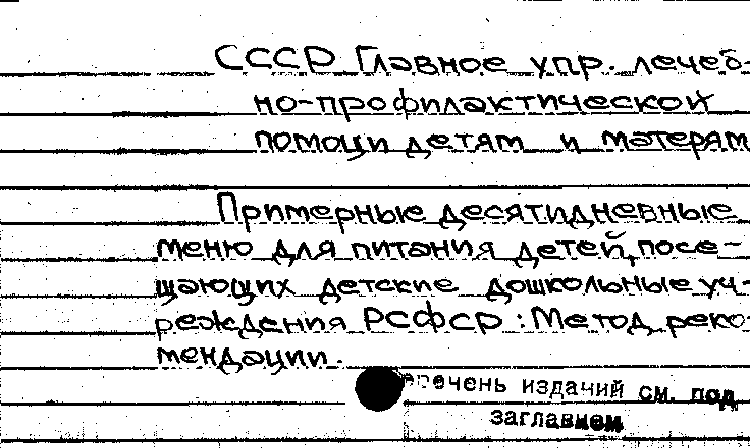 СССР Главное упр. лечеб-
но-профилактической
помощи детям и матерям
Примерные десятидневные
меню для питания детей, посе-
щающих детские дошкольные уч-
реждения РСФСР : Метод. реко-
мендации.
перечень изданий см. под
заглавием